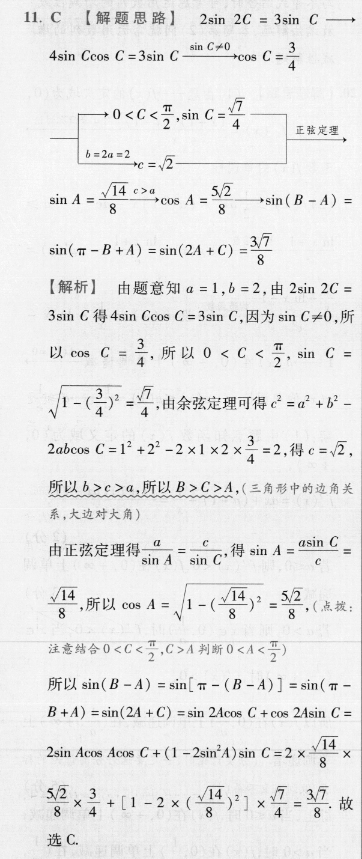 11. C 【解题思路】 2sin 2C = 3sin C →
4sin Ccos C = 3sin C —sin C≠0→ cos C = 3/4
→ 0 < C < π/2, sin C = √7/4
正弦定理
b = 2a = 2 → c = √2
sin A = √14/8 —c > a→ cos A = 5√2/8 → sin(B - A) =
sin(π - B + A) = sin(2A + C) = 3√7/8
【解析】 由题意知 a = 1, b = 2, 由 2sin 2C =
3sin C 得 4sin Ccos C = 3sin C, 因为 sin C≠0, 所
以 cos C = 3/4, 所以 0 < C < π/2, sin C =
√(1 - (3/4)²) = √7/4, 由余弦定理可得 c² = a² + b² -
2abcos C = 1² + 2² - 2 × 1 × 2 × 3/4 = 2, 得 c = √2,
所以 b > c > a, 所以 B > C > A, (三角形中的边角关
系, 大边对大角)
由正弦定理得 a/sin A = c/sin C, 得 sin A = asin C/c =
√14/8, 所以 cos A = √(1 - (√14/8)²) = 5√2/8, (点拨:
注意结合 0 < C < π/2, C > A 判断 0 < A < π/2)
所以 sin(B - A) = sin[π - (B - A)] = sin(π -
B + A) = sin(2A + C) = sin 2Acos C + cos 2Asin C =
2sin Acos Acos C + (1 - 2sin²A)sin C = 2 × √14/8 ×
5√2/8 × 3/4 + [1 - 2 × (√14/8)²] × √7/4 = 3√7/8. 故
选 C.